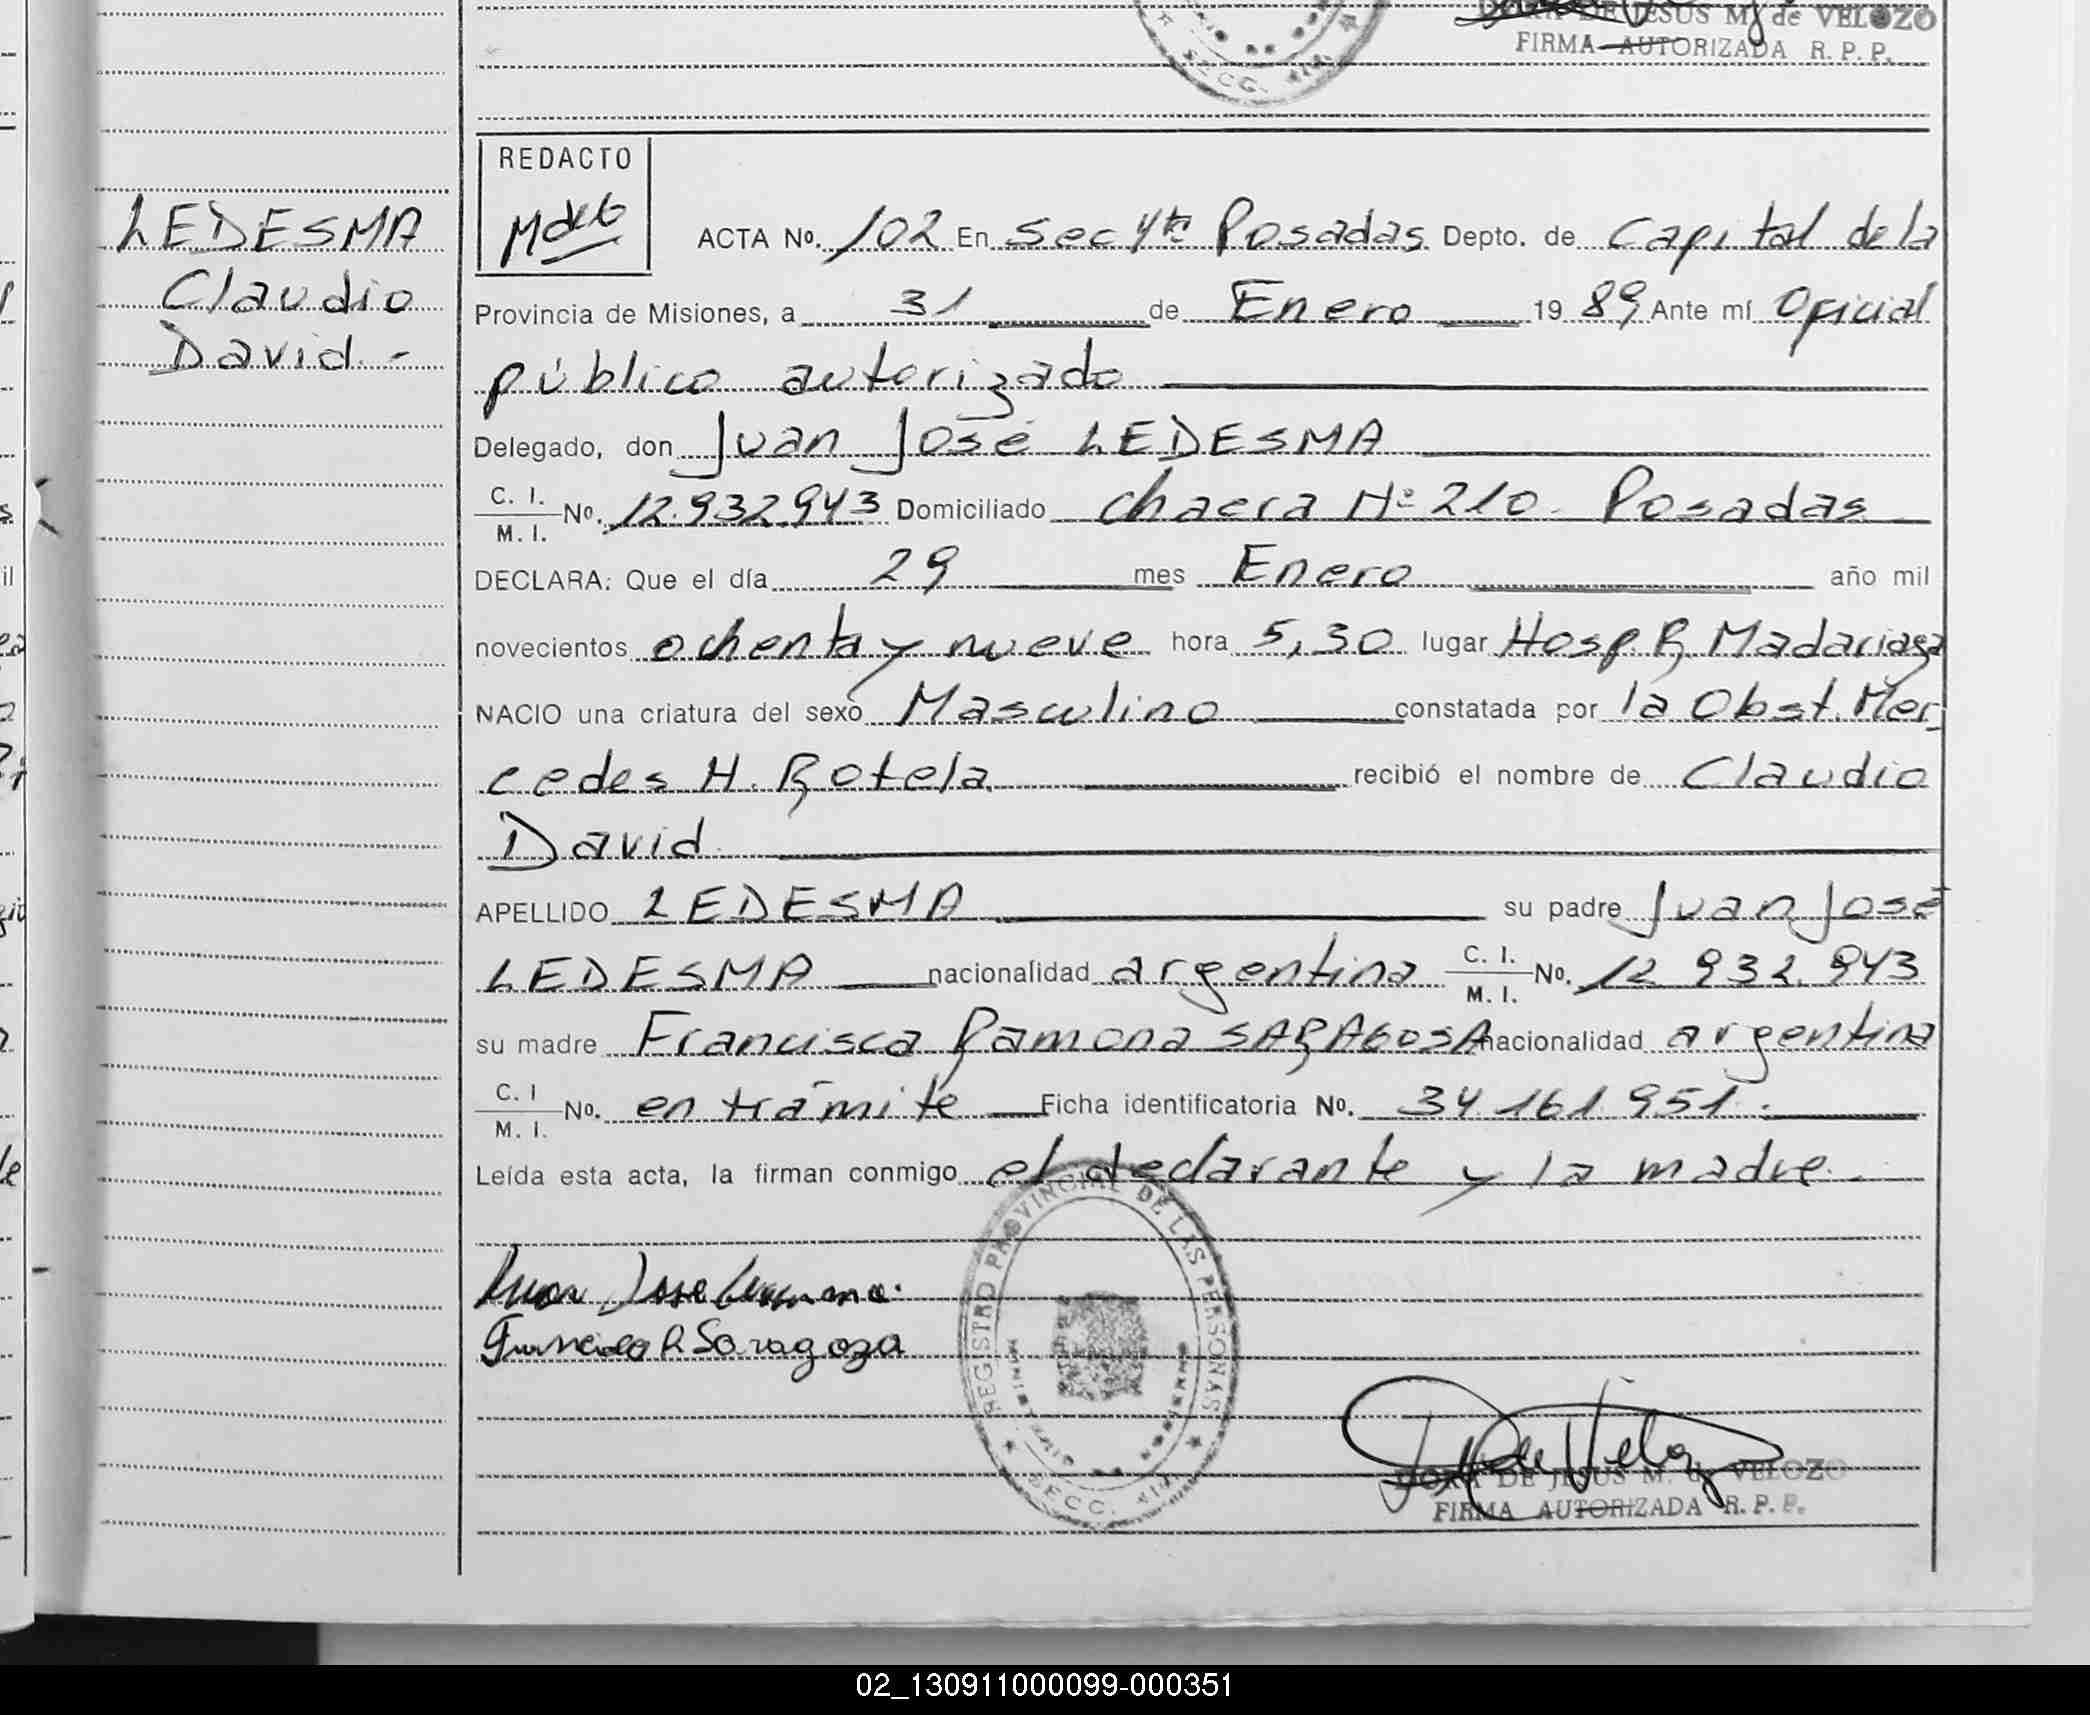 DORA DE JESUS M. de VELOZO
FIRMA AUTORIZADA R. P. P.
SECC.
LEDESMA
Claudio
David.-
REDACTO
ACTA Nº. 102 En Sec 4ta Posadas Depto. de Capital de la
Provincia de Misiones, a 31 de Enero 19 89 Ante mí Oficial
público autorizado
Delegado, don Juan José LEDESMA
C. I.
M. I. Nº. 12.932.943 Domiciliado chacra Nº 210. Posadas
DECLARA: Que el día 29 mes Enero año mil
novecientos ochenta y nueve hora 5,30 lugar Hosp. R. Madariaga
NACIO una criatura del sexo Masculino constatada por la Obst. Mer
cedes H. Rotela recibió el nombre de Claudio
David
APELLIDO LEDESMA su padre Juan José
LEDESMA nacionalidad argentina C. I.
M. I. Nº. 12 932.943
su madre Francisca Ramona SARAGOSA nacionalidad argentina
C. I
M. I. Nº. en trámite Ficha identificatoria Nº. 34 161 951.
Leída esta acta, la firman conmigo el declarante y la madre.
REGISTRO PROVINCIAL DE LAS PERSONAS
SECC.
Juan Jose Ledesma.
Francisca R Saragoza
DORA DE JESUS M. d. VELOZO
FIRMA AUTORIZADA R. P. P.
02_130911000099-000351